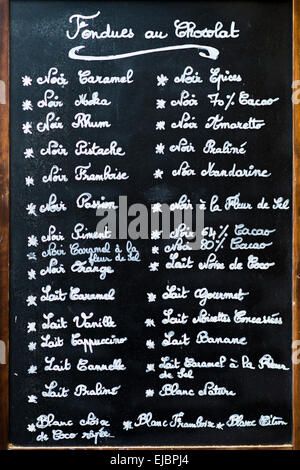 Fondues au Chocolat
Noir Caramel
Noir Moka
Noir Rhum
Noir Pistache
Noir Framboise
Noir Passion
Noir Piment
Noir Caramel à la
fleur de Sel
Noir Orange
Lait Caramel
Lait Vanille
Lait Cappuccino
Lait Cannelle
Lait Praliné
Noir Epices
Noir 70% Cacao
Noir Amaretto
Noir Praliné
Noir Mandarine
Noir à la Fleur de Sel
Noir 64% Cacao
Noir 80% Cacao
Lait Noix de Coco
Lait Gourmet
Lait Noisettes Concassées
Lait Banane
Lait Caramel à la Fleur
de Sel
Blanc Nature
Blanc Noix
de Coco râpée
Blanc Framboise
Blanc Citron
alamy
Image ID: EJBPJ4
www.alamy.com